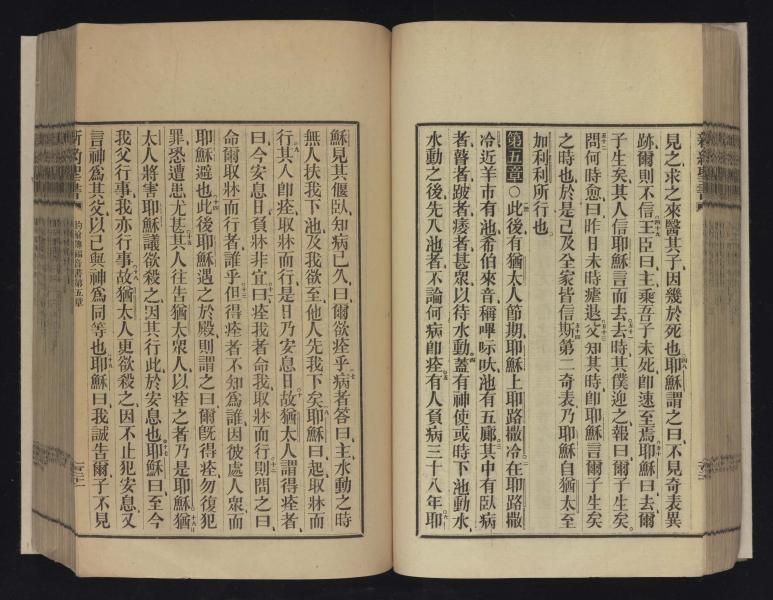 見之求之來醫其子因幾於死也耶穌謂之曰不見奇表異
跡爾則不信王臣曰主乘吾子未死卽速至焉耶穌曰去爾
子生矣其人信耶穌言而去去時其僕迎之報曰爾子生矣
問何時愈曰昨日未時瘧退父知其時卽耶穌言爾子生矣
之時也於是己及全家皆信斯第二奇表乃耶穌自猶太至
加利利所行也
第五章○此後有猶太人節期耶穌上耶路撒冷在耶路撒
冷近羊市有池希伯來音稱嗶吩吠池有五廊其中有臥病
者瞽者跛者痿者甚眾以待水動蓋有神使或時下池動水
水動之後先入池者不論何病卽痊有人負病三十八年耶
穌見其偃臥知病已久曰爾欲痊乎病者答曰主水動之時
無人扶我下池及我欲至他人先我下矣耶穌曰起取牀而
行其人卽痊取牀而行是日乃安息日故猶太人謂得痊者
曰今安息日負牀非宜曰痊我者命我取牀而行則問之曰
命爾取牀而行者誰乎但得痊者不知為誰因彼處人眾而
耶穌避也此後耶穌遇之於殿則謂之曰爾旣得痊勿復犯
罪恐遭患尤甚其人往告猶太眾人以痊之者乃是耶穌猶
太人將害耶穌議欲殺之因其行此於安息也耶穌曰至今
我父行事我亦行事故猶太人更欲殺之因不止犯安息又
言神為其父以己與神為同等也耶穌曰我誠告爾子不見
新約聖書 約翰傳福音書第五章